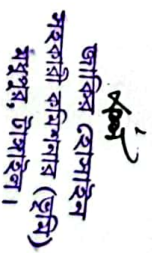 জাকির হোসাইন
সহকারি কমিশনার (ভূমি)
মধুপুর, টাঙ্গাইল।